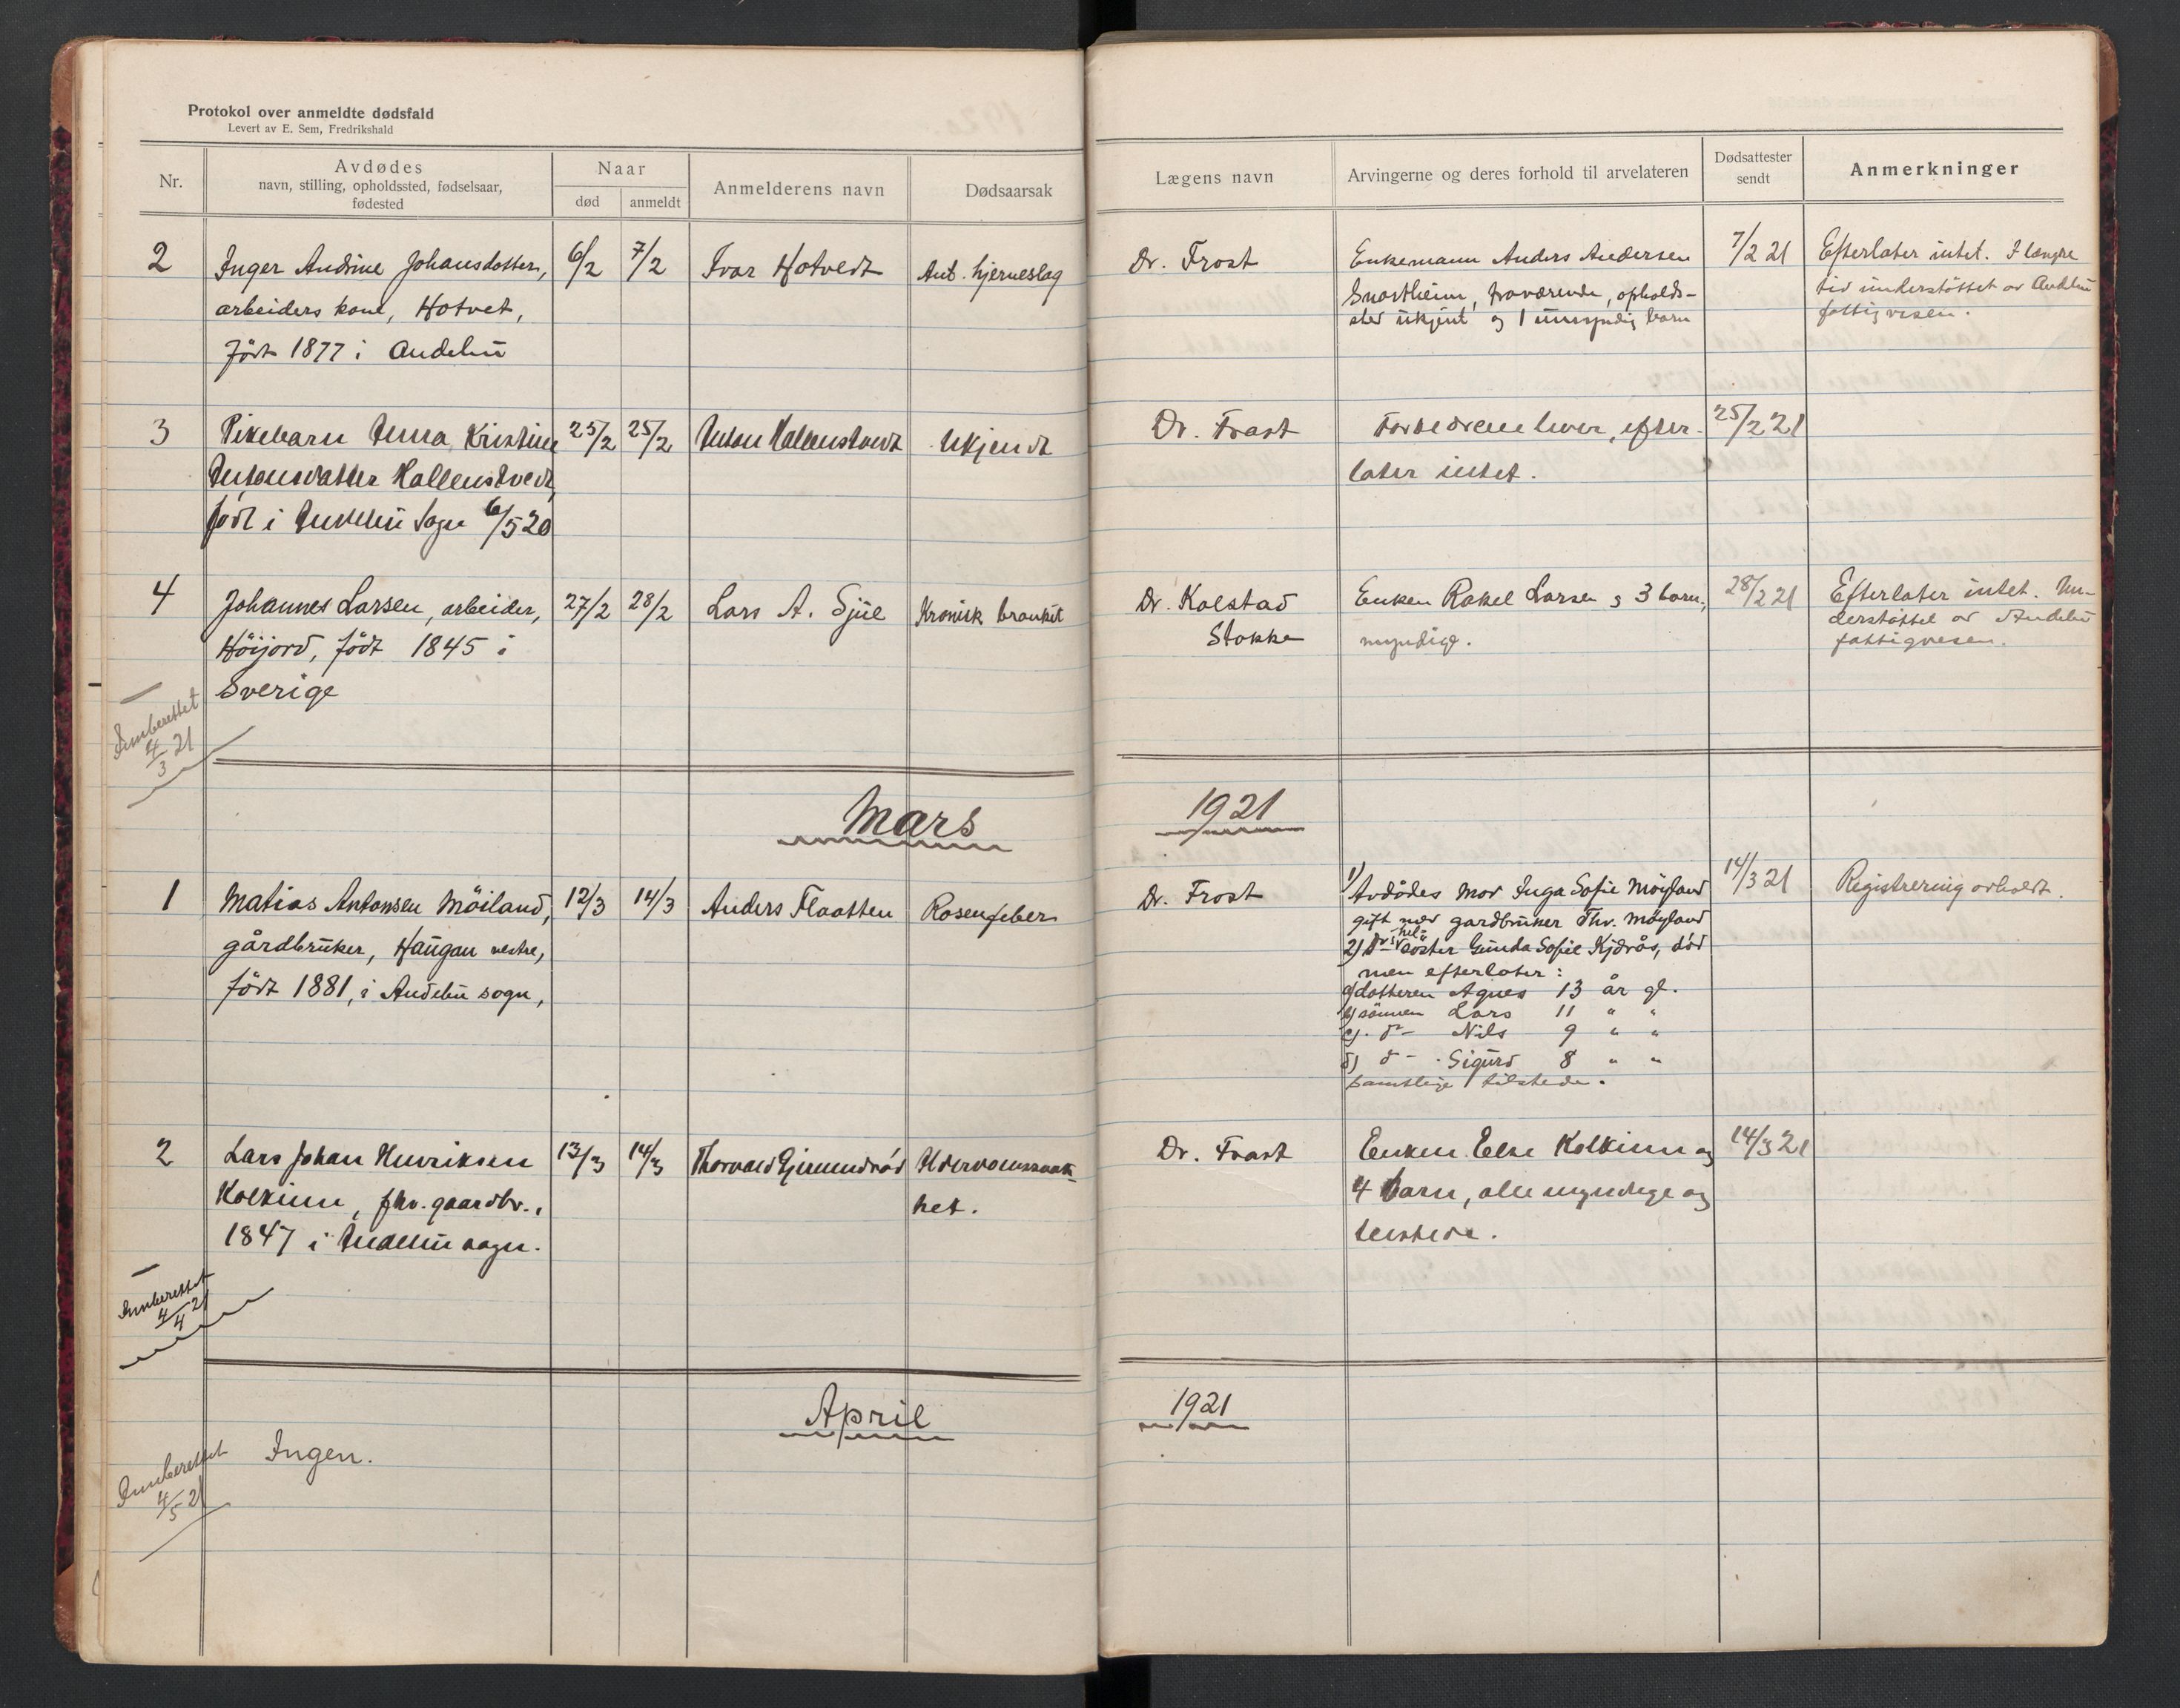 Protokol over anmeldte dødsfald
Levert av E. Sem, Fredrikshald
Nr.
Avdødes
navn, stilling, opholdssted, fødselsaar,
fødested
Naar
død
anmeldt
Anmelderens navn
Dødsaarsak
Lægens navn
Arvingerne og deres forhold til arvelateren
Dødsattester
sendt
Anmerkninger
2
Inger Andrine Johansdotter,
arbeiders kone, Hotvet,
født 1877 i Andebu
6/2
7/2
Ivar Hotvedt
Ant. hjerneslag
Dr. Frost
Enkemann Anders Andersen
Snartheim, fraværende, opholds-
sted ukjent og 1 umyndig barn
7/2 21
Efterlater intet. I længre
tid understøttet av Andebu
fattigvesen.
3
Pikebarn Anna Kristine
Antonsdatter Hallenstvedt,
født i Andebu sogn 6/5 20
25/2
25/2
Anton Hallenstvedt
Ukjendt
Dr. Frost
Forældrene lever, efter-
later intet.
25/2 21
4
Johannes Larsen, arbeider,
Höijord, födt 1845 i
Sverige
27/2
28/2
Lars A. Sjue
Kronisk bronkit
Dr. Kolstad
Stokke
Enken Rakel Larsen og 3 barn,
myndige.
28/2 21
Efterlater intet. Un-
derstøttet av Andebu
fattigvesen.
Innberettet
4/3 21
Mars
1921
1
Matias Antonsen Möiland,
gårdbruker, Haugan vestre,
födt 1881, i Andebu sogn,
12/3
14/3
Anders Flaatten
Rosenfeber
Dr. Frost
1) Avdödes mor Inga Sofie Möyland
gift med gardbruker Thv. Möyland
2) Do hel-söster Gunda Sofie Kjærås, död
men efterlater:
a) dotteren Agnes 13 år gl.
b) sönnen Lars 11 " "
c) do - Nils 9 " "
d) do - Sigurd 8 " "
samtlige tilstede.
14/3 21
Registrering avholdt.
2
Lars Johan Henriksen
Kolkinn, fhv. gaardbr.,
1847 i Andebu sogn.
13/3
14/3
Thorvald Gjermundrød
Alderdomssvak-
het.
Dr. Frost
Enken Else Kolkinn og
4 barn, alle myndige og
tilstede.
14/3 21
Innberettet
4/4 21
April
1921
Ingen.
Innberettet
4/5 21